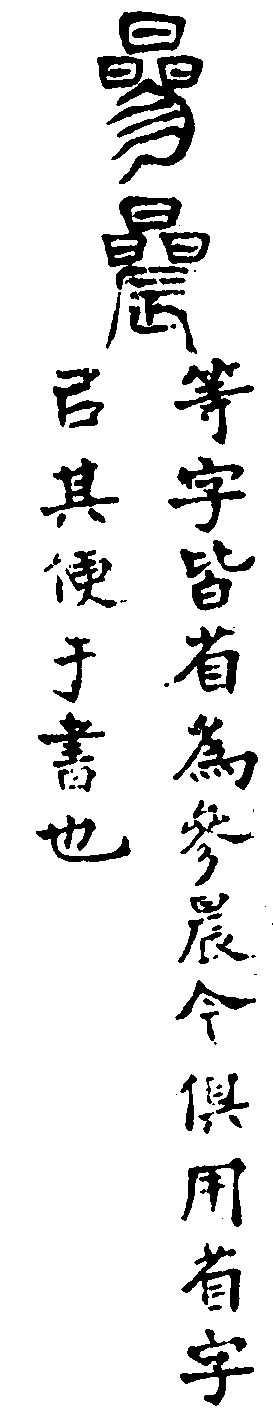 曑曟
等字皆省為參晨今俱用省字
㠯其便于書也